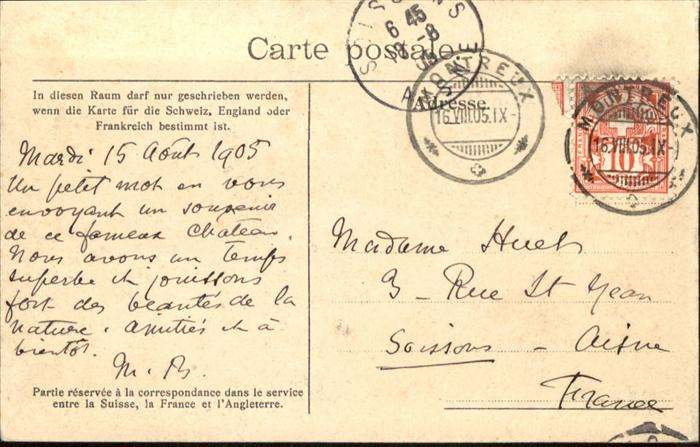 Carte postale
SOISSONS
6 45
AISNE
MONTREUX
16.VIII.05.IX-
MONTREUX
16.VIII.05.IX-
10
Adresse
In diesen Raum darf nur geschrieben werden,
wenn die Karte für die Schweiz, England oder
Frankreich bestimmt ist.
Mardi 15 Août 1905
Un petit mot en vous
envoyant un souvenir
de ce fameux Chateau.
Nous avons un temps
superbe et jouissons
fort des beautés de la
nature. Amitiés et à
bientôt.
M. B.
Partie réservée à la correspondance dans le service
entre la Suisse, la France et l'Angleterre.
Madame Huet
3 - Rue St Jean
Soissons - Aisne
France